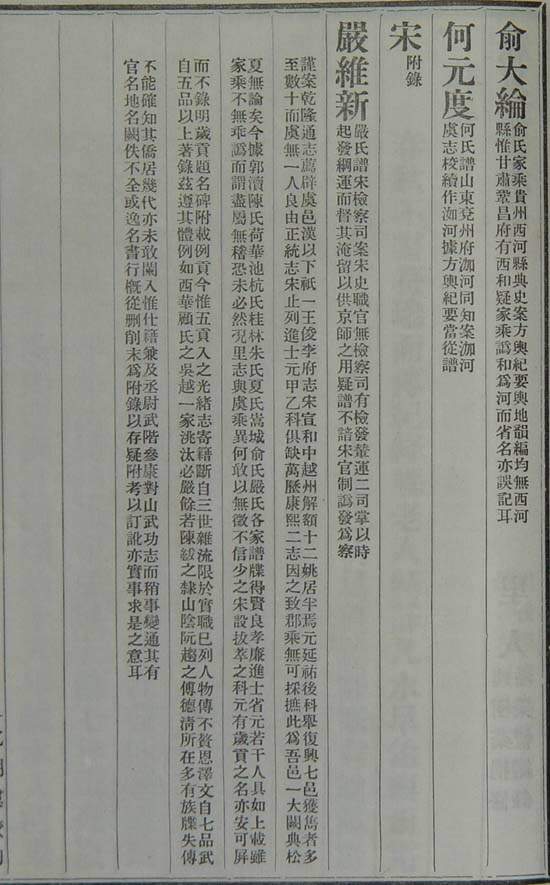 俞大綸
俞氏家乘貴州西河縣典史案方輿紀要輿地韻編均無西河
縣惟甘肅鞏昌府有西和疑家乘譌和爲河而省名亦誤記耳
何元度
何氏譜山東兗州府泇河同知案泇河
虞志校續作洳河據方輿紀要當從譜
宋附錄
嚴維新
嚴氏譜宋檢察司案宋史職官無檢察司有檢發輦運二司掌以時
起發綱運而督其淹留以供京師之用疑譜不諳宋官制譌發爲察
謹案乾隆通志薦辟虞邑漢以下祇一王俊李府志宋宣和中越州解額十二姚居半焉元延祐後科舉復興七邑獲雋者多
至數十而虞無一人良由正統志宋止列進士元甲乙科俱缺萬歷康熙二志因之致郡乘無可採摭此爲吾邑一大闕典松
夏無論矣今據郭瀆陳氏荷華池杭氏桂林朱氏夏氏嵩城俞氏嚴氏各家譜牒得賢良孝廉進士省元若干人具如上載雖
家乘不無乖譌而謂盡屬無稽恐未必然況里志與虞乘異何敢以無徵不信少之宋設拔萃之科元有歲貢之名亦安可屏
而不錄明歲貢題名碑附載例貢今惟五貢入之光緒志寄籍斷自三世雜流限於實職巳列人物傳不贅恩澤文自七品武
自五品以上著錄茲遵其體例如西華顧氏之吳越一家洮汰必嚴餘若陳綬之隸山陰阮趨之傳德淸所在多有族牒失傳
不能確知其僑居幾代亦未敢闌入惟仕籍兼及丞尉武階參康對山武功志而稍事變通其有
官名地名闕佚不全或逸名書行槪從删削末爲附錄以存疑附考以訂訛亦實事求是之意耳